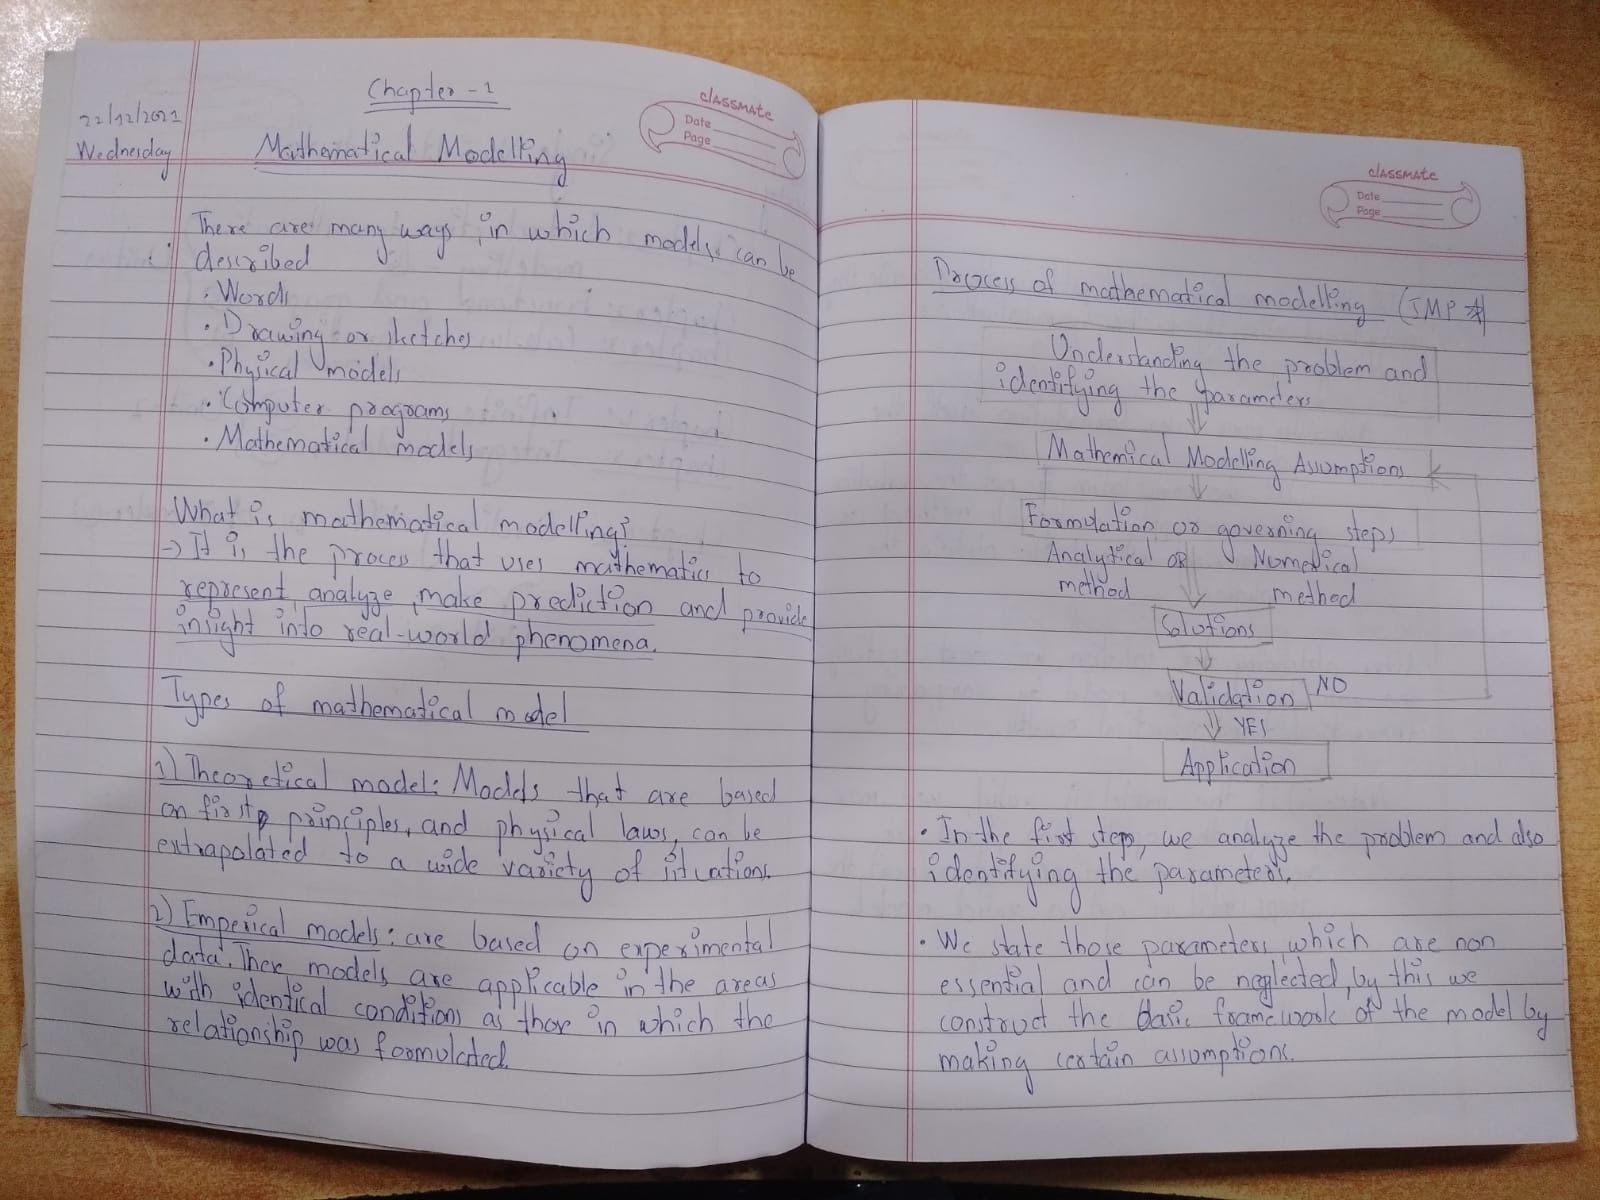 Chapter - 1
22/12/2021
Wednesday
Mathematical Modelling
classmate
Date
Page
There are many ways in which models can be
described
• Words
• Drawing or sketches
• Physical models
• Computer programs
• Mathematical models
What is mathematical modelling?
→ It is the process that uses mathematics to
represent, analyze, make prediction and provide
insight into real-world phenomena.
Types of mathematical model
1) Theoretical model: Models that are based
on first principles, and physical laws, can be
extrapolated to a wide variety of situations.
2) Emperical models: are based on experimental
data. These models are applicable in the areas
with identical conditions as those in which the
relationship was formulated.
classmate
Date
Page
Process of mathematical modelling (IMP *)
Understanding the problem and
identifying the parameters
Mathemical Modelling Assumptions
Formulation or governing steps
Analytical OR Numerical
method method
Solutions
Validation NO
YES
Application
• In the first step, we analyze the problem and also
identifying the parameters.
• We state those parameters which are non
essential and can be neglected, by this we
construct the basic framework of the model by
making certain assumptions.